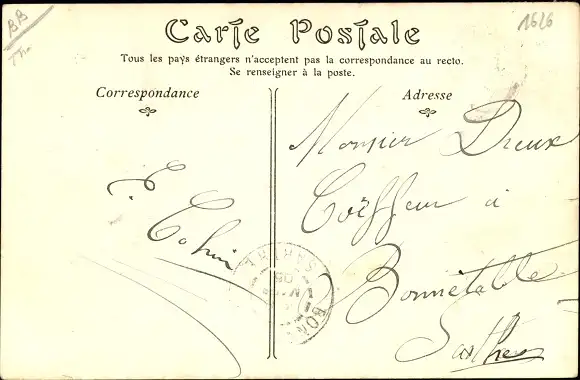 BB
1626
Carte Postale
Tous les pays étrangers n'acceptent pas la correspondance au recto.
Se renseigner à la poste.
Correspondance
Adresse
Monsieur Dreux
Coiffeur à
Bonnétable
Sarthe
E. Cohin
SARTHE
05
BON